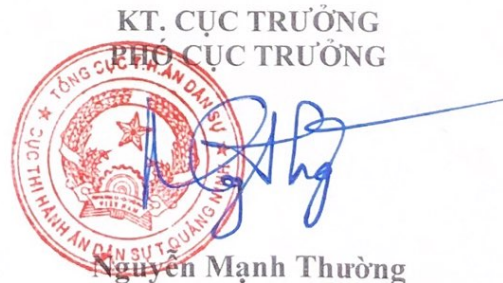 KT. CỤC TRƯỞNG
PHÓ CỤC TRƯỞNG
TỔNG CỤC T.H.ÁN DÂN SỰ
CỤC THI HÀNH ÁN DÂN SỰ T.QUẢNG NINH
Nguyễn Mạnh Thường